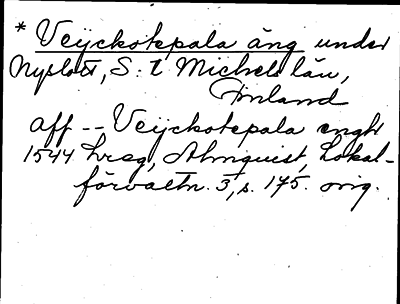 * Veijckotepala äng under
Nyslott, S:t Michels län,
Finland
aff -- Veijckotepala enghr
1544 hrsg, Almquist, Lokal-
förvaltn. 3, s. 175. orig.